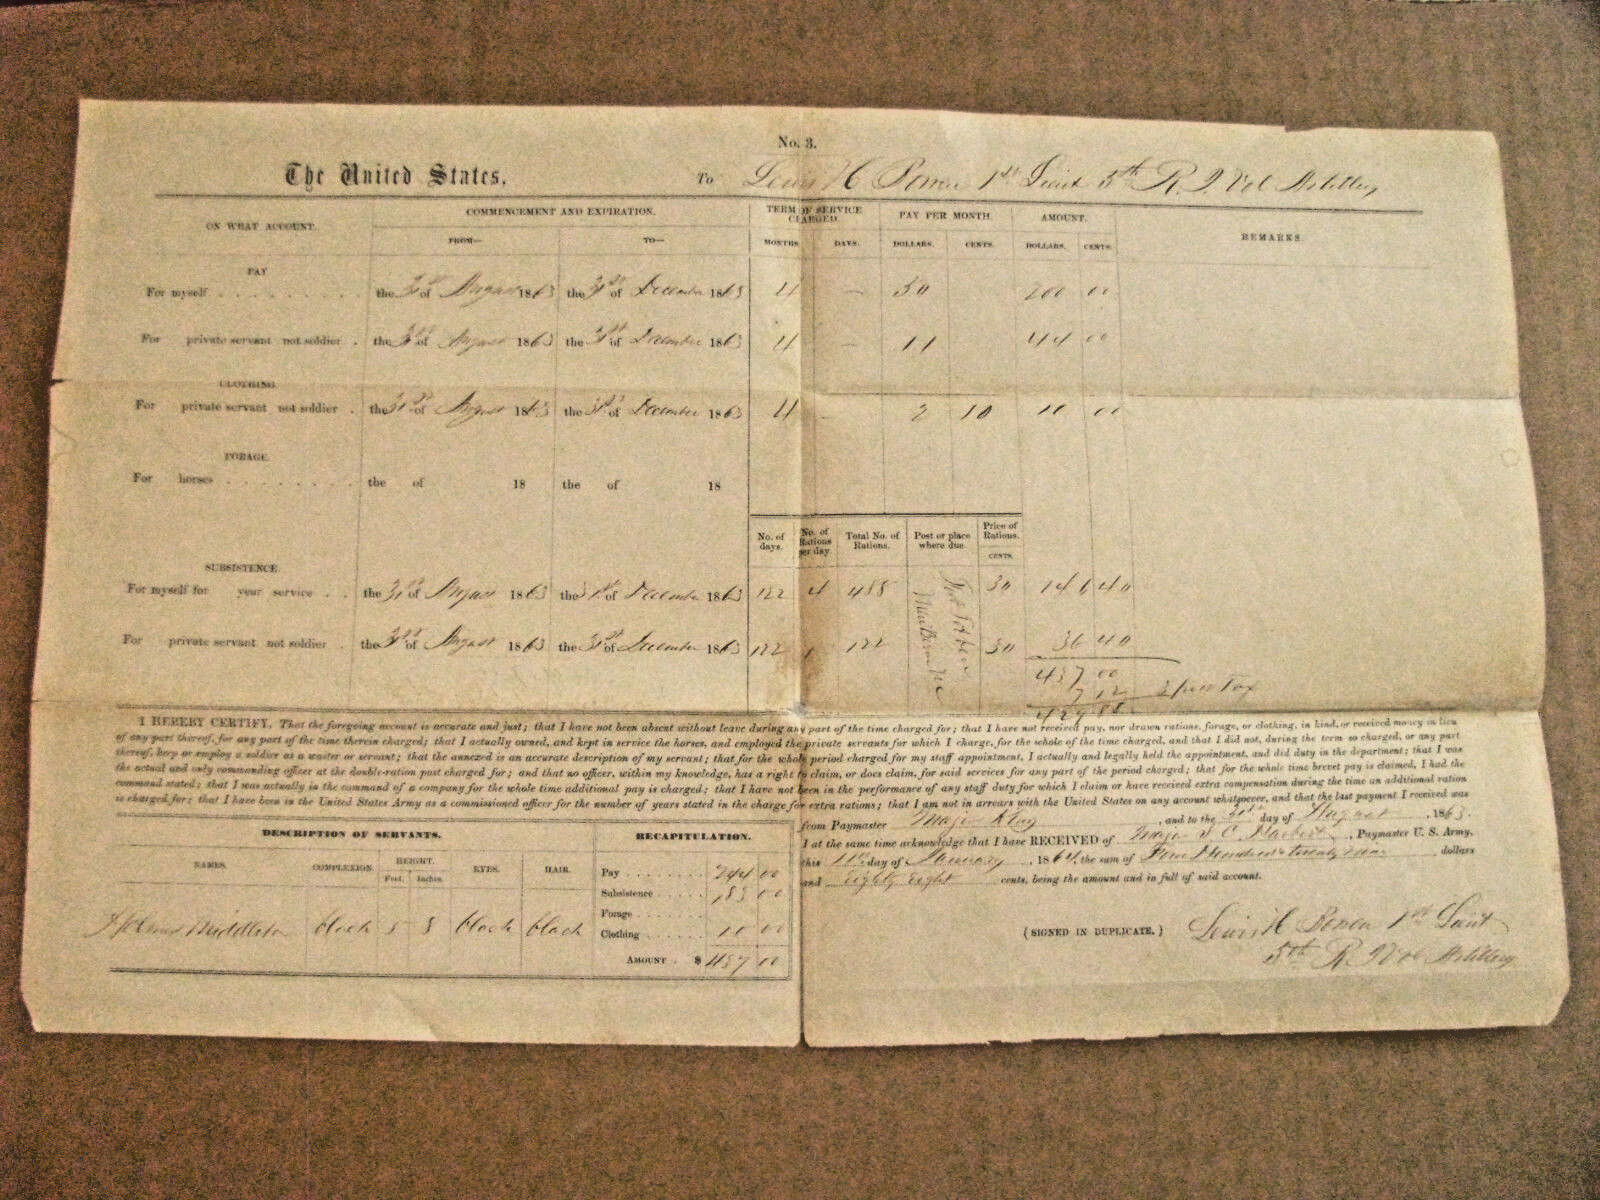 No. 3.
The United States, To Lewis H Bowen 1st Lieut 5th R. I Vol Artillery
ON WHAT ACCOUNT. COMMENCEMENT AND EXPIRATION. TERM OF SERVICE CHARGED. PAY PER MONTH. AMOUNT. REMARKS.
FROM— TO— MONTHS. DAYS. DOLLARS. CENTS. DOLLARS. CENTS.
PAY
For myself . . . . . . . . . the 31st of August 1863 the 31st of December 1863 4 — 50 200 00
For private servant not soldier . the 31st of August 1863 the 31st of December 1863 4 — 11 44 00
CLOTHING.
For private servant not soldier . the 31st of August 1863 the 31st of December 1863 4 2 10 10 00
FORAGE.
For horses . . . . . . . . the of 18 the of 18
No. of days. No. of Rations per day. Total No. of Rations. Post or place where due. Price of Rations. CENTS.
SUBSISTENCE.
For myself for year service . . the 31st of August 1863 the 31st of December 1863 122 4 488 30 146 40
For private servant not soldier . the 31st of August 1863 the 31st of December 1863 122 1 122 30 36 40
437 00
7 12
429 88
I HEREBY CERTIFY, That the foregoing account is accurate and just; that I have not been absent without leave during any part of the time charged for; that I have not received pay, nor drawn rations, forage, or clothing, in kind, or received money in lieu
of any part thereof, for any part of the time therein charged; that I actually owned, and kept in service the horses, and employed the private servants for which I charge, for the whole of the time charged, and that I did not, during the term so charged, or any part
thereof, keep or employ a soldier as a waiter or servant; that the annexed is an accurate description of my servant; that for the whole period charged for my staff appointment, I actually and legally held the appointment, and did duty in the department; that I was
the actual and only commanding officer at the double-ration post charged for; and that no officer, within my knowledge, has a right to claim, or does claim, for said services for any part of the period charged; that for the whole time brevet pay is claimed, I had the
command stated; that I was actually in the command of a company for the whole time additional pay is charged; that I have not been in the performance of any staff duty for which I claim or have received extra compensation during the time an additional ration
is charged for; that I have been in the United States Army as a commissioned officer for the number of years stated in the charge for extra rations; that I am not in arrears with the United States on any account whatsoever, and that the last payment I received was
from Paymaster Major , and to the 31st day of August , 1863.
I at the same time acknowledge that I have RECEIVED of Major , Paymaster U. S. Army,
this 11th day of January , 1864, the sum of Four Hundred & twenty nine dollars
and eighty eight cents, being the amount and in full of said account.
DESCRIPTION OF SERVANTS.
NAMES. COMPLEXION. HEIGHT. Feet. Inches. EYES. HAIR.
Middleton black 5 8 black black
RECAPITULATION.
Pay . . . . . . . . 244 00
Subsistence . . . . . 183 00
Forage . . . . . .
Clothing . . . . . . 10 00
AMOUNT . $ 437 00
{SIGNED IN DUPLICATE.} Lewis H Bowen 1st Lieut
5th R. I Vol Artillery